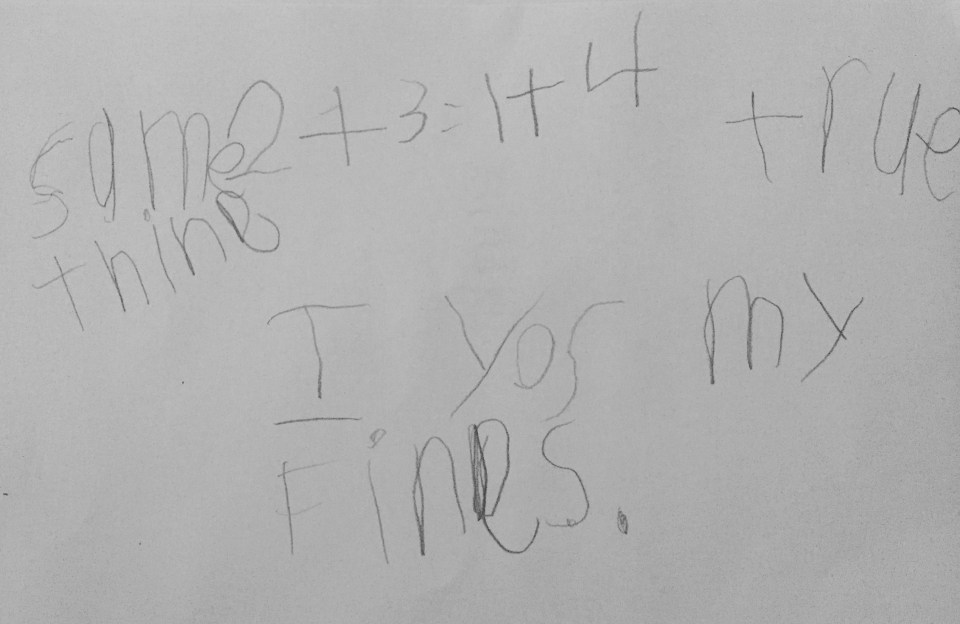 same 2+3=1+4 true
thing
I yos my
Fines.